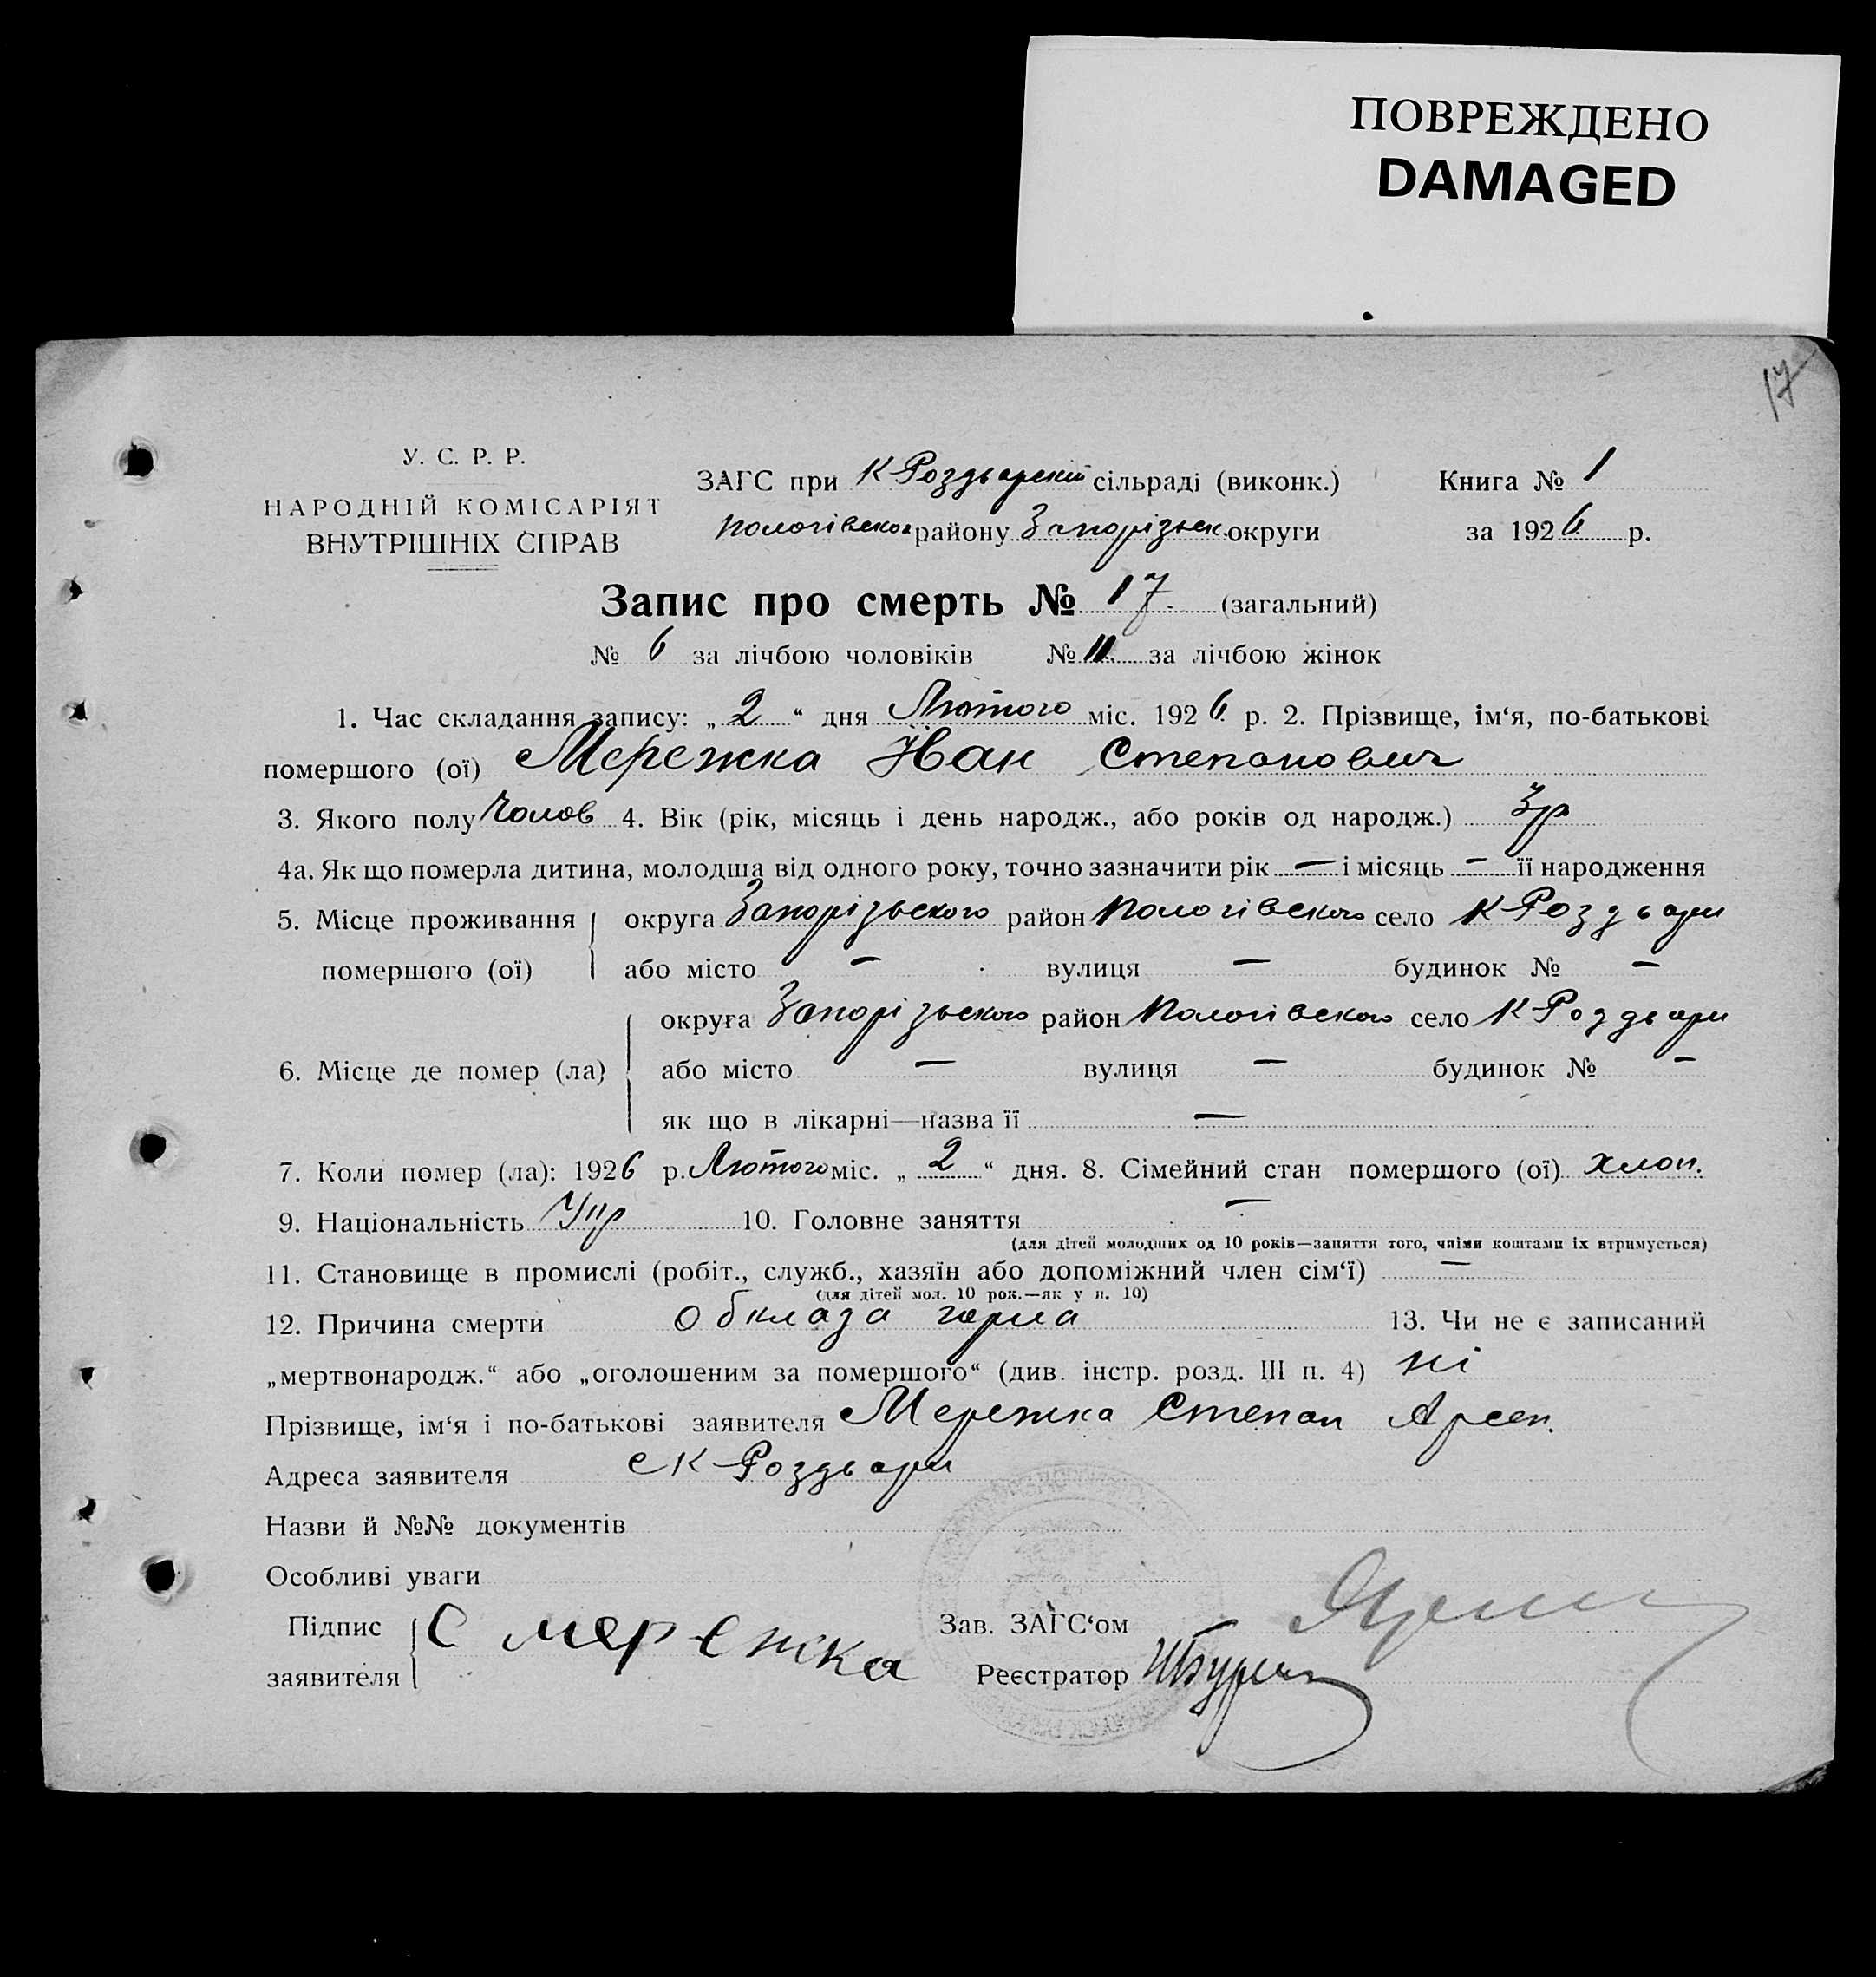 ПОВРЕЖДЕНО
DAMAGED
17
У. С. Р. Р.
НАРОДНІЙ КОМІСАРІЯТ
ВНУТРІШНІХ СПРАВ
ЗАГС при К Роздьорскій сільраді (виконк.)
Пологівського району Запорізьк. округи
Книга № 1
за 1926 р.
Запис про смерть № 17. (загальний)
№ 6 за лічбою чоловіків № 11 за лічбою жінок
1. Час складання запису: „2“ дня Лютого міс. 1926 р. 2. Прізвище, ім‘я, по-батькові
помершого (ої) Мережка Іван Степанович
3. Якого полу Чолов 4. Вік (рік, місяць і день народж., або років од народж.) 3р
4а. Як що померла дитина, молодша від одного року, точно зазначити рік — і місяць — її народження
5. Місце проживання помершого (ої) округа Запорізьского район Пологівского село К Роздьори
або місто — вулиця — будинок № —
6. Місце де помер (ла) округа Запорізьского район Пологівского село К Роздьори
або місто — вулиця — будинок № —
як що в лікарні—назва її —
7. Коли помер (ла): 1926 р. Лютого міс. „2“ дня. 8. Сімейний стан помершого (ої) хлоп.
9. Національність Укр 10. Головне заняття —
(для дітей молодших од 10 років—заняття того, чиїми коштами їх втримується)
11. Становище в промислі (робіт., служб., хазяїн або допоміжний член сім‘ї) —
(для дітей мол. 10 рок.—як у п. 10)
12. Причина смерти обклаза горла 13. Чи не є записаний
„мертвонародж.“ або „оголошеним за помершого“ (див. інстр. розд. III п. 4) ні
Прізвище, ім‘я і по-батькові заявителя Мережка Степан Арсен.
Адреса заявителя с К Роздьори
Назви й №№ документів
Особливі уваги
Підпис заявителя С мережка
Зав. ЗАГС‘ом
Реєстратор